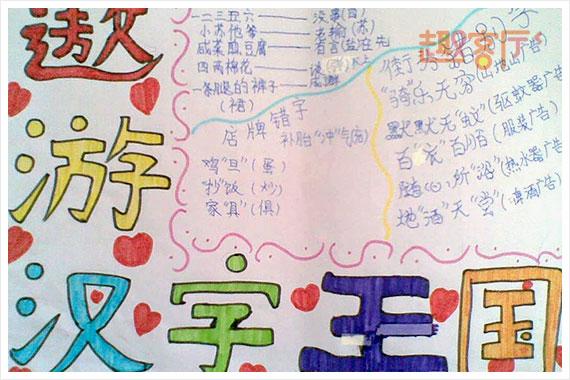 遨
游
汉字王国
一二三五六——没事(四)
小苏他爷——老输(苏)
咸菜煎豆腐——有言(盐)在先
四两棉花——谈
一条腿的裤子
(裙)
店牌错字
补胎"冲"气店
鸡"旦"(蛋)
抄饭(炒)
家"具"(俱)
街
"骑"乐无穷(山地山广告)
默默无"蚊"(驱蚊器广告)
百"衣"百顺(服装广告)
随心所"浴"(热水器广告)
地"酒"天"堂"(啤酒广告)
趣客厅